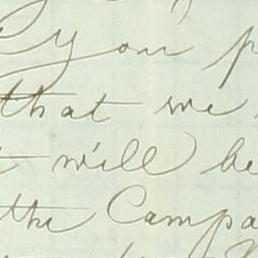 your p
that we
will be
the Campa